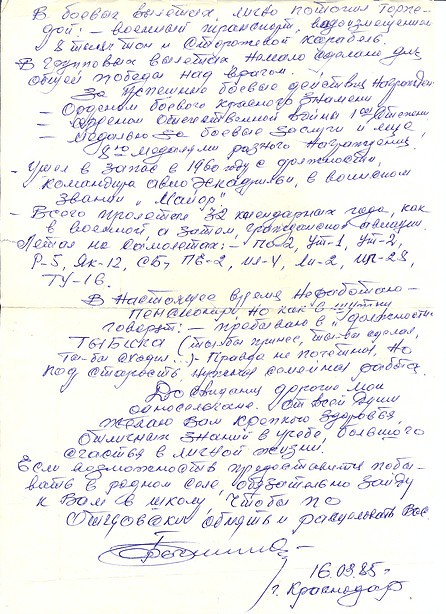 В боевых вылетах, лично потопил торпе-
дой: - военный транспорт, водоизмещением
8 тысяч тон и Сторожевой Корабль.
В групповых вылетах Немало сделано для
общей победы над врагом. -
За успешные боевые действия Награжден
- Орденом боевого Красного Знамени
- Орденом Отечественной Войны 1ой степени
- Медалью За боевые Заслуги и еще
8ю медалями разного Награждения,
- Ушел в Запас в 1960 году с должности,
командира авиаэскадрильи, в воинском
звании „Майор".
- Всего пролетал 32 календарных года, как
в военной, а затем, гражданской авиации.
Летал на самолетах: - По-2, Ут-1, Ут-2,
Р-5, Як-12, СБ, ПЕ-2, Ли-2, ИЛ-28,
ТУ-16.
В Настоящее время Не работаю -
Пенсионер, Но как в шутку
говорят: - пребываю в „должности
ТЫБИКА (ты-бы принес, ты-бы сделал,
Ты-бы сходил..) - Правда не почетная, Но
под старость, Нужная семейная работа.
До свидания дорогие мои
односельчане. От всей души
желаю Вам крепкого здоровья,
отличных знаний в учебе, большого
счастья в личной жизни.
Если возможность представится побы-
вать в родном селе, обязательно зайду
к Вам в школу, чтобы по
Отцовски, обнять и расцеловать Вас.
16.03.85г.
г. Краснодар